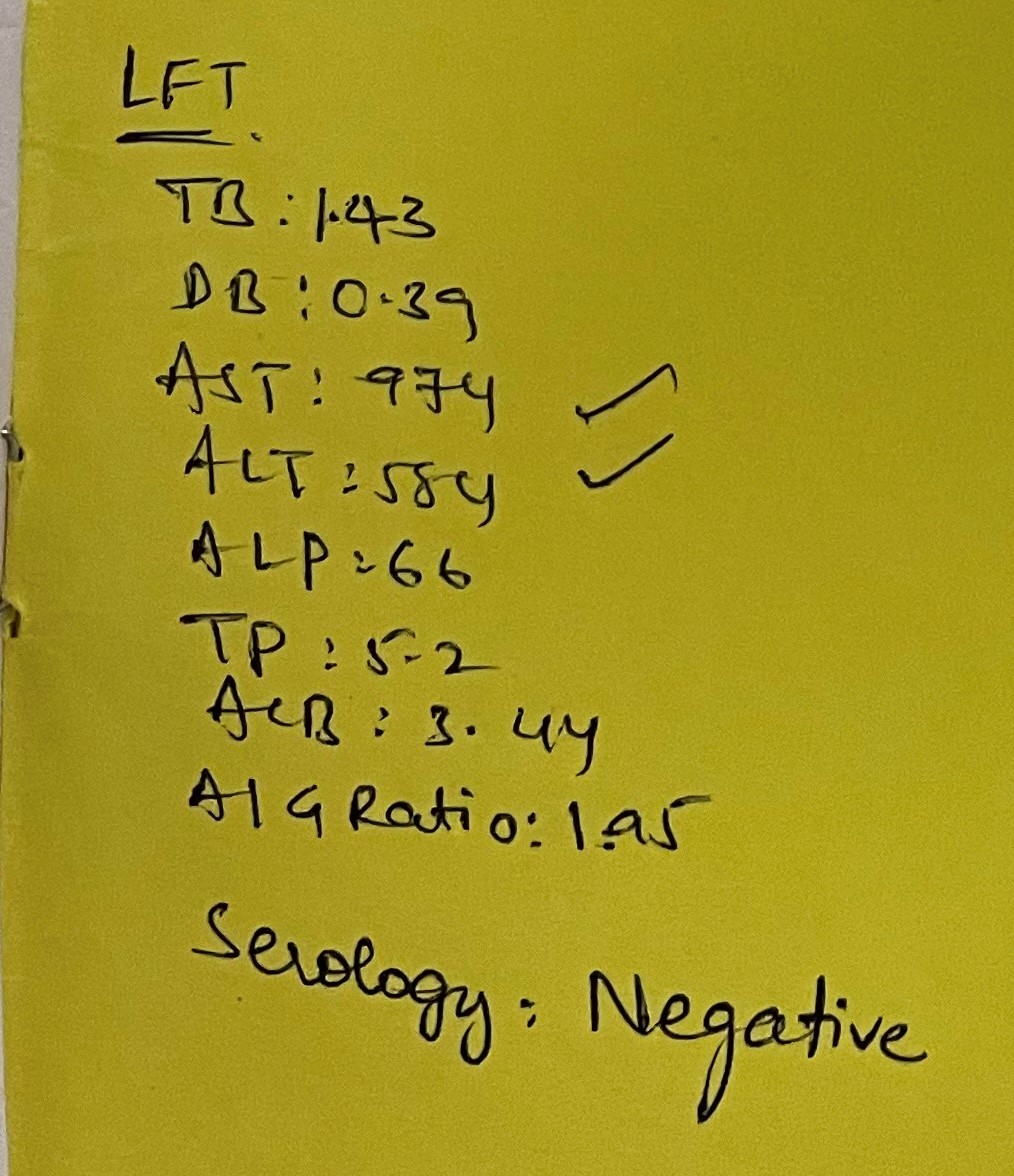 LFT
TB : 1.43
DB : 0.39
AST : 974 ✓
ALT : 584 ✓
ALP : 66
TP : 5.2
ALB : 3.44
A/G Ratio : 1.95
Serology : Negative